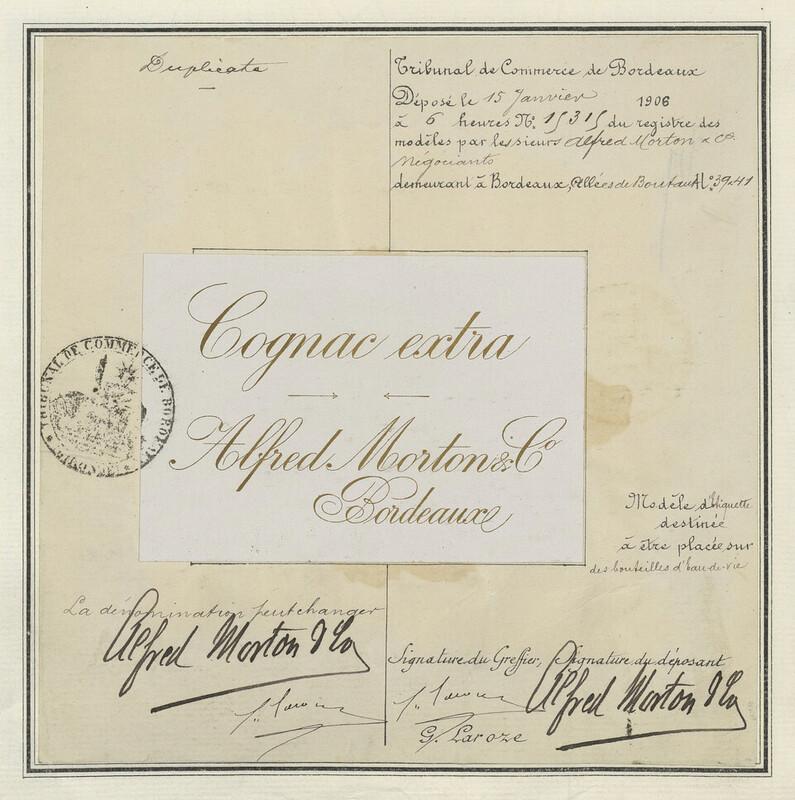 Duplicata
Tribunal de Commerce de Bordeaux
Déposé le 15 Janvier 1906
à 6 heures No. 15315 du registre des
modèles par les sieurs Alfred Morton & Co.
Négociants
demeurant à Bordeaux, Allées de Boutaut No. 39-41
Cognac extra
Alfred Morton & Co
Bordeaux
TRIBUNAL DE COMMERCE DE BORDEAUX
GIRONDE
Modèle d'étiquette
destinée
à être placée sur
des bouteilles d'Eau-de-vie
La dénomination peut changer
Alfred Morton & Co
Signature du Greffier, Signature du déposant
Alfred Morton & Co
G. Laroze